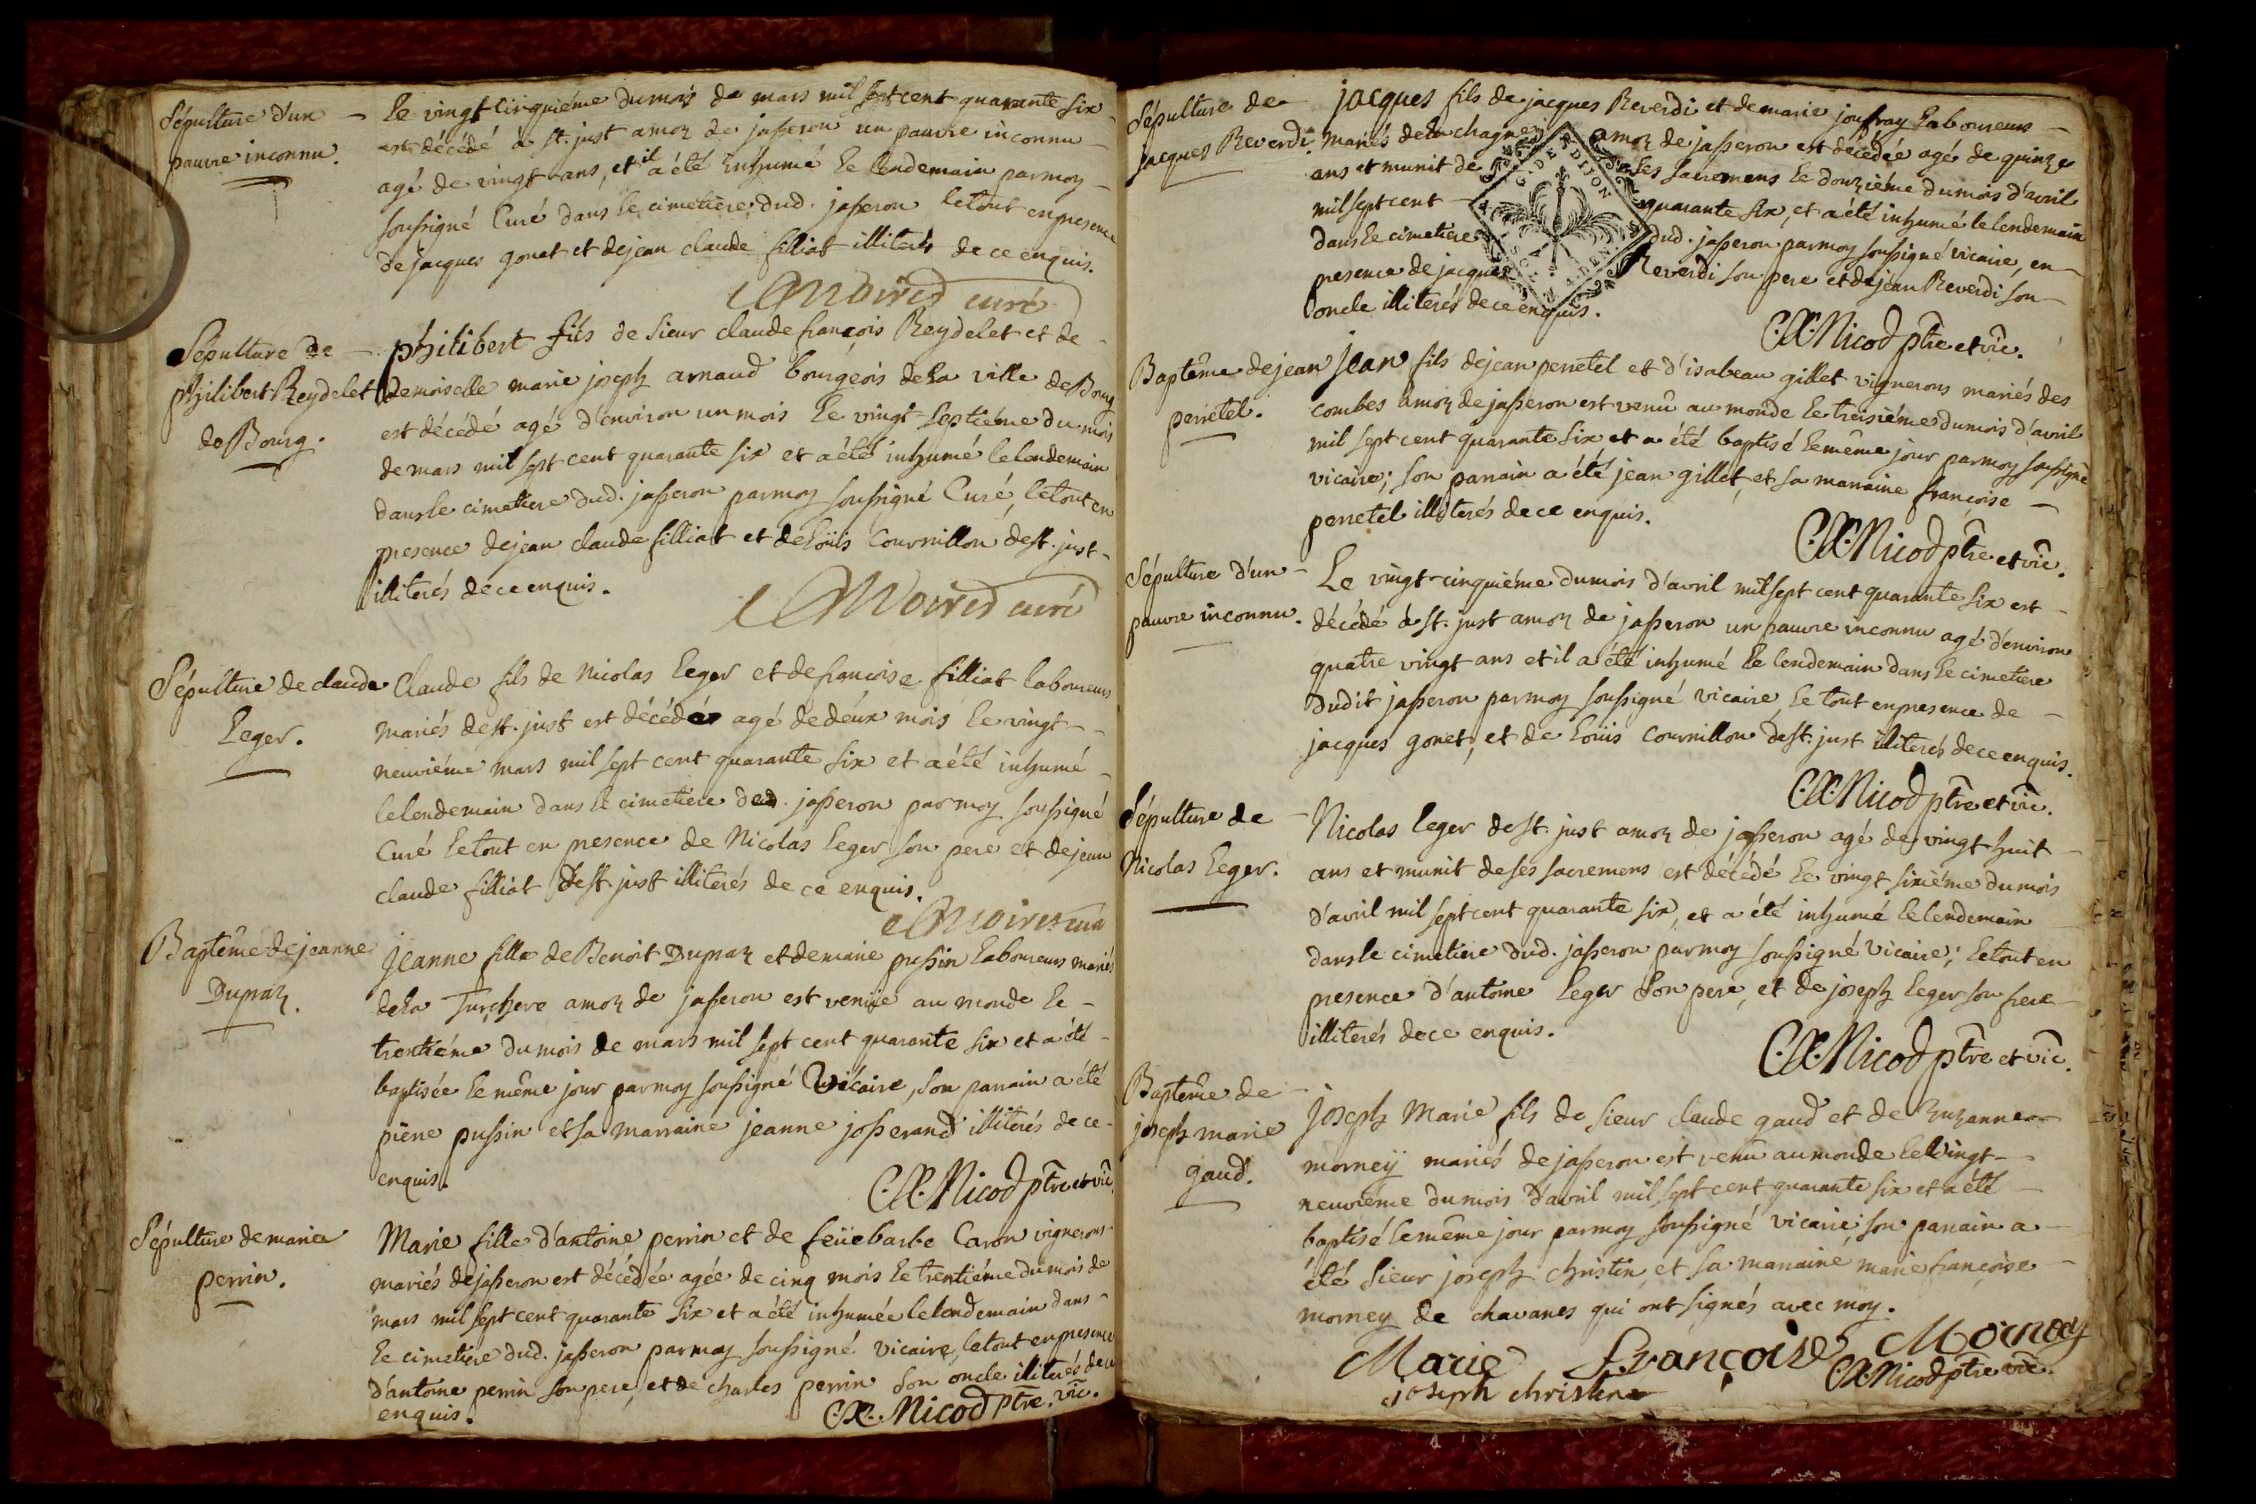 Sépulture d'un
pauvre inconnu.
Le vingt cinquiéme du mois de mars mil sept cent quarante six
est décédé à st. just amoz de jasseron un pauvre inconnu
agé de vingt ans, et il a été inhumé le lendemain par moy
soussigné Curé dans le cimetiere dud. jasseron le tout en presence
de jacques gonet et de jean claude filliat illiterés de ce enquis.
curé
Sépulture de
philibert Reydelet
de Bourg.
philibert fils de Sieur claude françois Reydelet et de
demoiselle marie joseph arnaud bourgeois de la ville de Bourg
est décédé agé d'environ un mois le vingt septiéme du mois
de mars mil sept cent quarante six et a été inhumé le lendemain
dans le cimetiere dud. jasseron par moy soussigné Curé, le tout en
presence de jean claude filliat et de Loüis Cournillon de st. just
illiterés de ce enquis.
curé
Sépulture de claude
Leger.
Claude fils de Nicolas Leger et de francoise filliat laboureurs
mariés de st. just est décédé agé de déux mois le vingt
neuviéme mars mil sept cent quarante six et a été inhumé
le lendemain dans le cimetiere dud. jasseron par moy soussigné
Curé le tout en presence de Nicolas Leger son pere et de jean
claude filliat de st. just illiterés de ce enquis.
Baptême de jeanne
Dupraz.
Jeanne fille de Benoit Dupraz et de marie pussin laboureurs mariés
de la amoz de jasseron est venüe au monde le
trentiéme du mois de mars mil sept cent quarante six et a été
baptisée le même jour par moy soussigné Vicaire, son parrain a été
piere pussin et sa marraine jeanne josserand illiterés de ce
enquis.
C.X. Nicod ptre et vic.
Sépulture de marie
perrin.
Marie fille d'antoine perrin et de feüe barbe Caron vignerons
mariés de jasseron est décédée agée de cinq mois le trentiéme du mois de
mars mil sept cent quarante six et a été inhumée le lendemain dans
le cimetiere dud. jasseron par moy soussigné vicaire, le tout en presence
d'antoine perrin son pere, et de charles perrin son oncle illiterés de ce
enquis.
C.X. Nicod ptre. vic.
Sépulture de
jacques Reverdi.
jacques fils de jacques Reverdi et de marie jouffray laboureurs
mariés de la chagne amoz de jasseron est décédée agé de quinze
ans et munit de ses sacremens le douziéme du mois d'avril
mil sept cent quarante six, et a été inhumé le lendemain
dans le cimetiere dud. jasseron par moy soussigné vicaire, en
presence de jacques Reverdi son pere et de jean Reverdi son
oncle illiterés de ce enquis.
G. DE DIJON
C.X. Nicod ptre et vic.
Baptême de jean
perretel.
Jean fils de jean perretel et d'isabeau gillet vignerons mariés des
combes amoz de jasseron est venû au monde le treisiéme du mois d'avril
mil sept cent quarante six et a été baptisé le même jour par moy soussigné
vicaire; son parrain a été jean gillet, et sa marraine françoise
perretel illiterés de ce enquis.
C.X. Nicod ptre et vic.
Sépulture d'un
pauvre inconnu.
Le vingt-cinquiéme du mois d'avril mil sept cent quarante six est
décédé à st. just amoz de jasseron un pauvre inconnu agé d'environ
quatre vingt ans et il a été inhumé le lendemain dans le cimetiere
dudit jasseron par moy soussigné vicaire, le tout en presence de
jacques gonet, et de Loüis Cournillon de st. just illiterés de ce enquis.
C.X. Nicod ptre et vic.
Sépulture de
Nicolas Leger.
Nicolas leger de st. just amoz de jasseron agé de vingt huit
ans et munit de ses sacremens est décédé le vingt sixiéme du mois
d'avril mil sept cent quarante six, et a été inhumé le lendemain
dans le cimetiere dud. jasseron par moy soussigné vicaire; le tout en
presence d'antoine Leger son pere, et de joseph leger son frere
illiterés de ce enquis.
C.X. Nicod ptre et vic.
Baptême de
joseph marie
gaud.
Joseph Marie fils de Sieur claude gaud et de Suzanne
morneÿ mariés de jasseron est venû au monde le vingt
neuviéme du mois d'avril mil sept cent quarante six et a été
baptisé le même jour par moy soussigné vicaire; son parrain a
été Sieur joseph christin, et sa marraine marie françoise
morney de chavanes qui ont signés avec moy.
Marie Françoise Mornay
joseph christin
C.X. Nicod ptre vic.